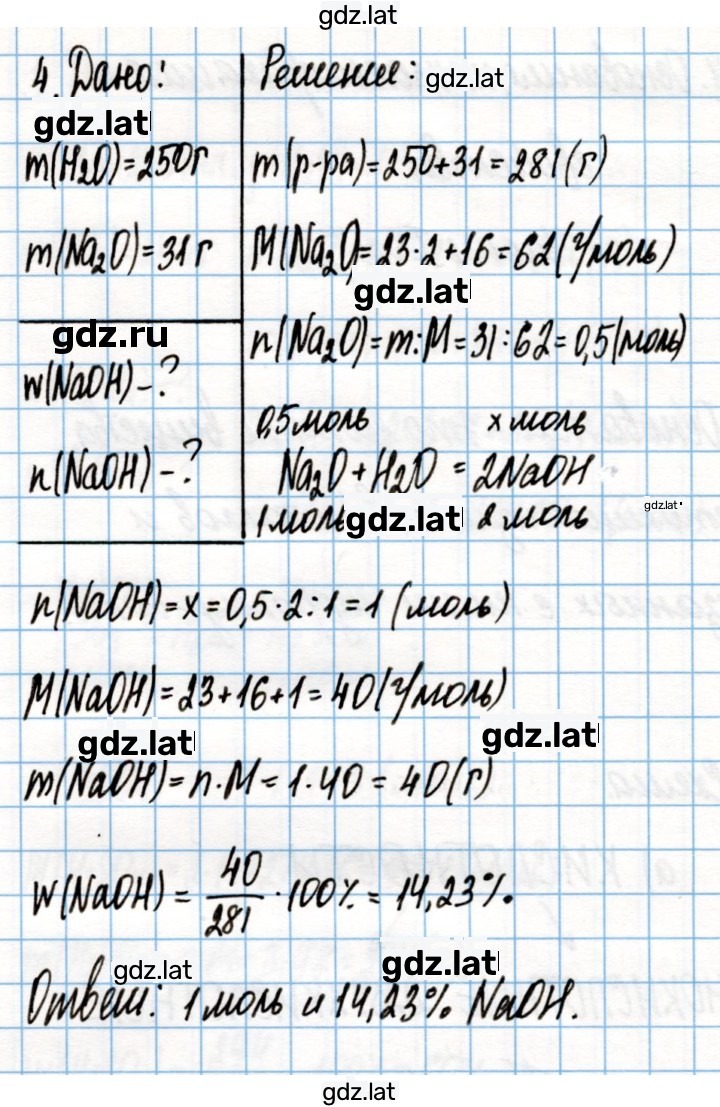 gdz.lat
4. Дано:
Решение:
gdz.lat
gdz.lat
m(H₂O)=250г
m(р-ра)=250+31=281(г)
m(Na₂O)=31г
M(Na₂O)=23·2+16=62(г/моль)
gdz.lat
gdz.ru
n(Na₂O)=m:M=31:62=0,5(моль)
w(NaOH)-?
0,5моль x моль
n(NaOH)-?
Na₂O+H₂O=2NaOH
1моль 2 моль
gdz.lat
gdz.lat
n(NaOH)=x=0,5·2:1=1(моль)
M(NaOH)=23+16+1=40(г/моль)
gdz.lat
gdz.lat
m(NaOH)=n·M=1·40=40(г)
w(NaOH)=40/281·100%=14,23%.
gdz.lat
gdz.lat
Ответ: 1 моль и 14,23% NaOH.
gdz.lat